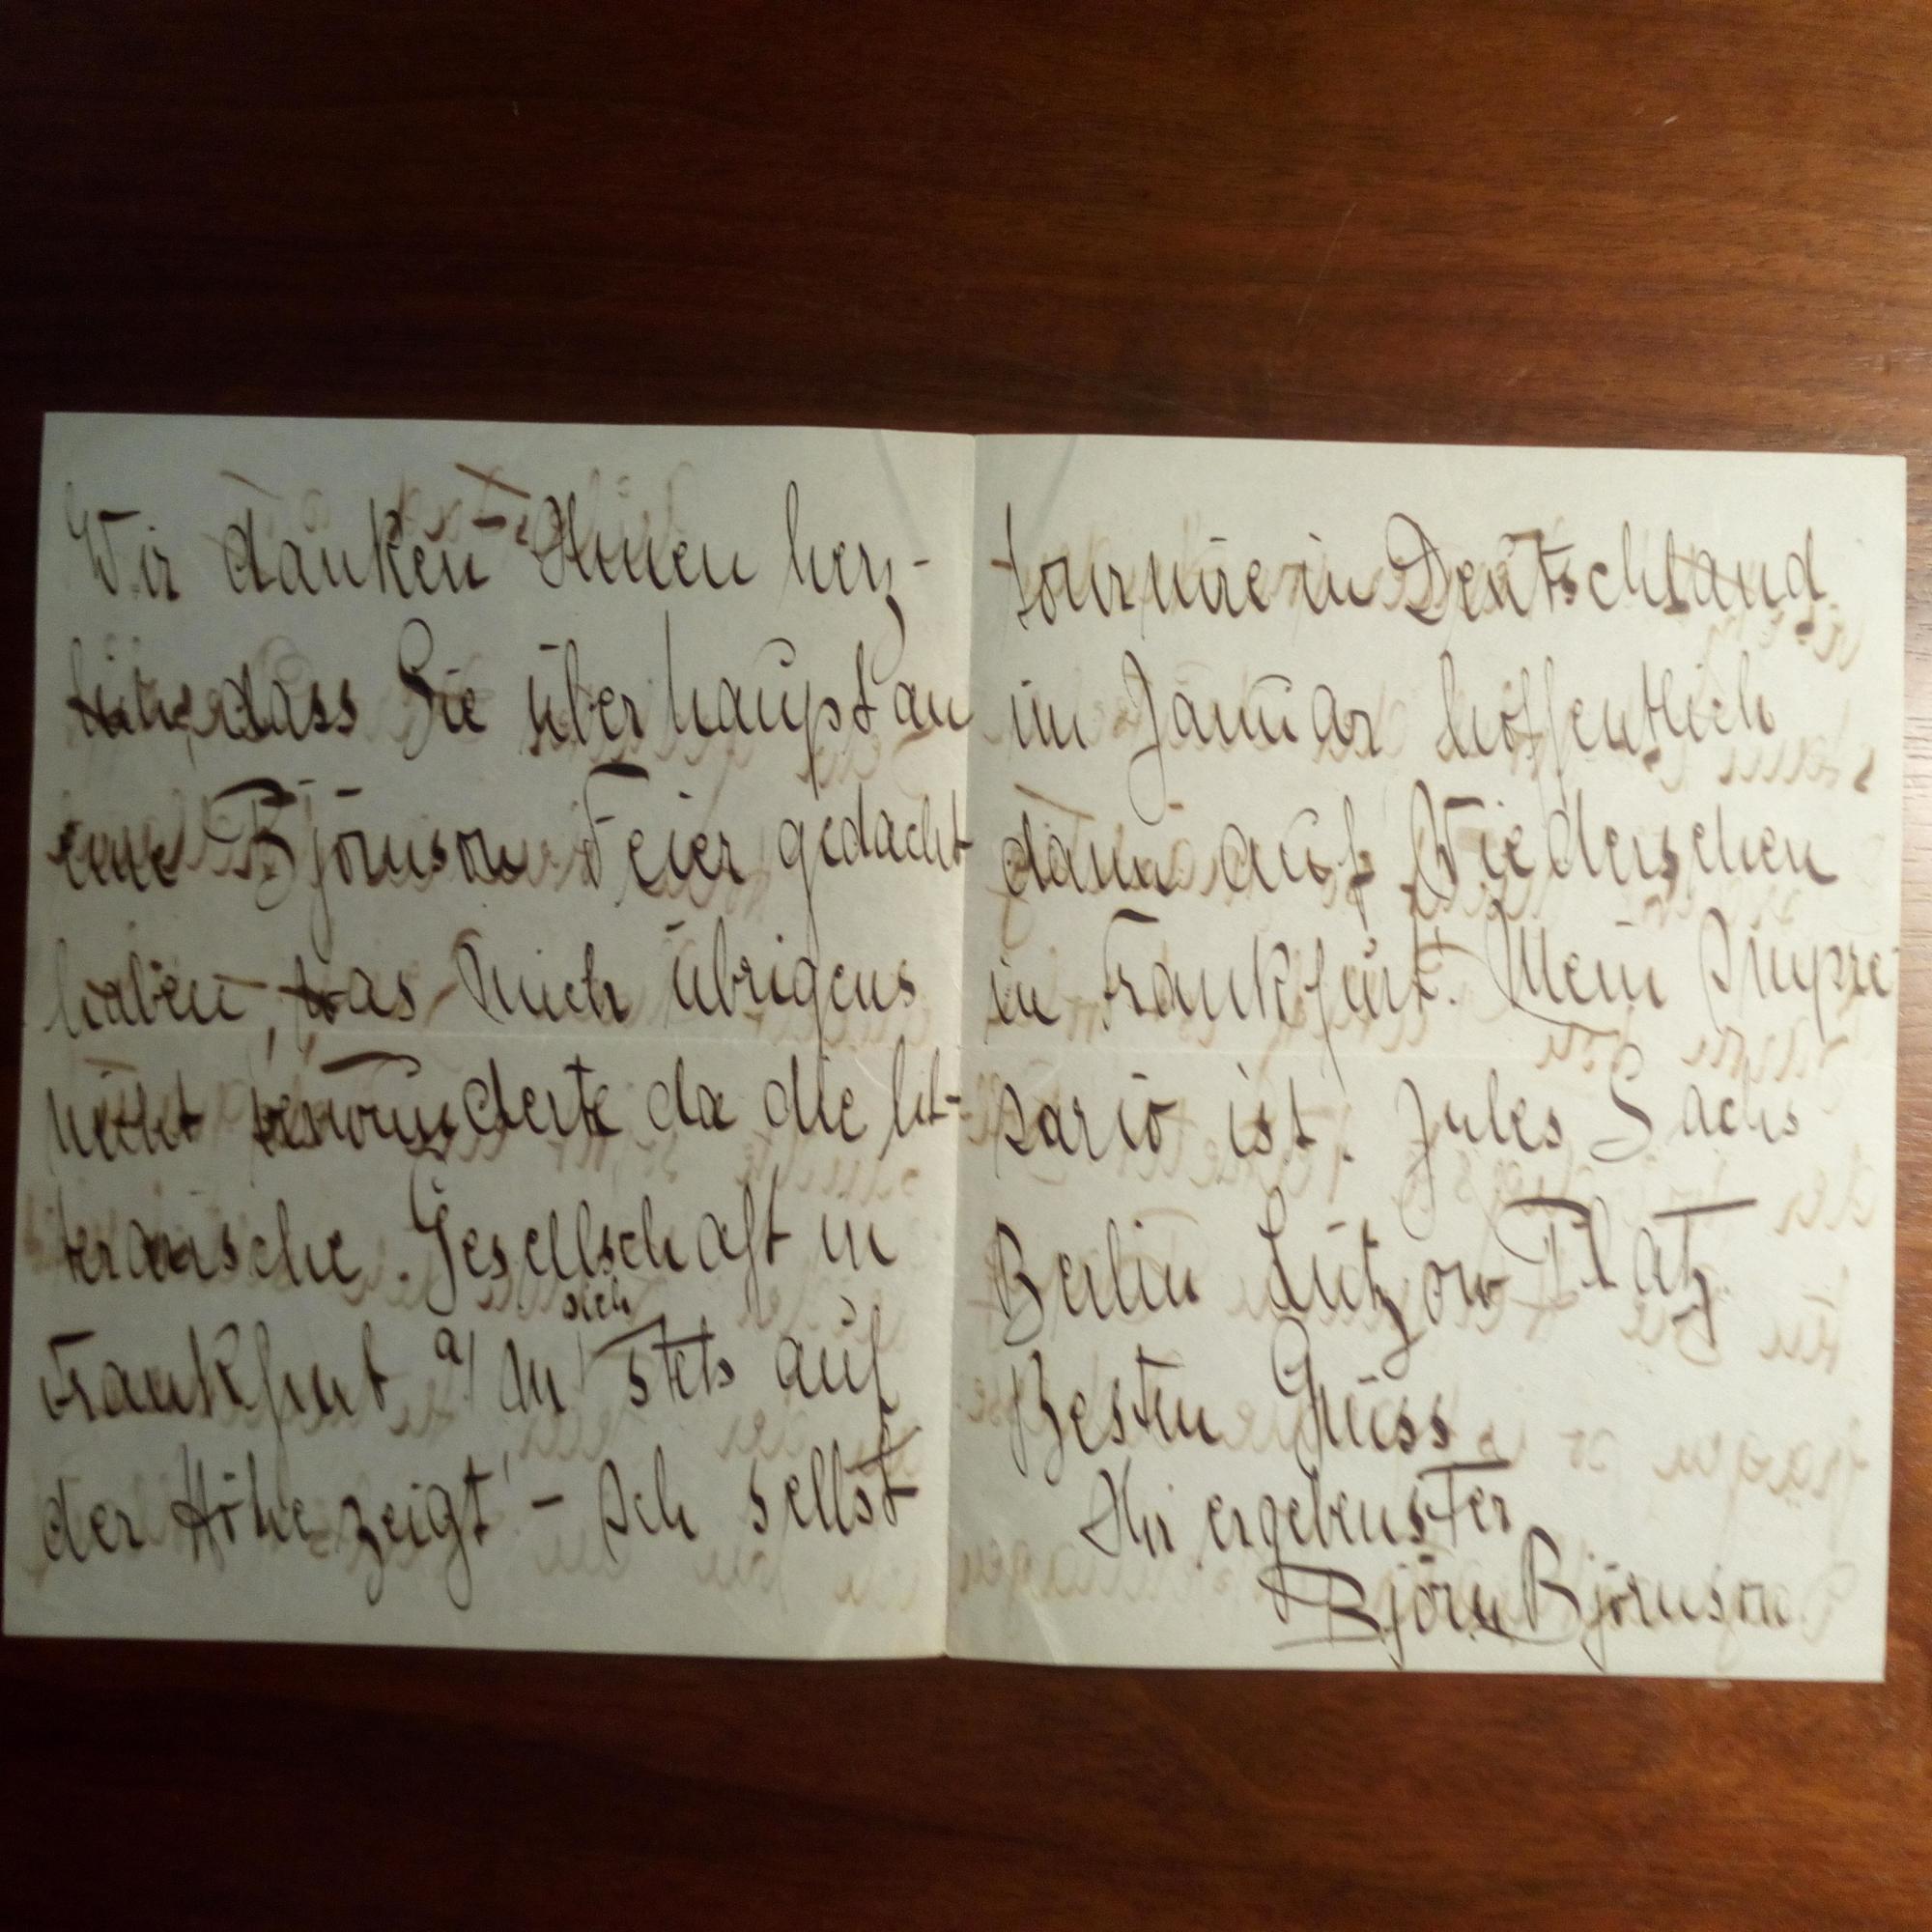 Wir danken Ihnen herz-
lich dass Sie überhaupt an
eine Björnson Feier gedacht
haben, was mich übrigens
nicht verwunderte da die lit-
terarische Gesellschaft in
Frankfurt a/M sich stets auf
der Höhe zeigt! – Ich selbst
tournire in Deutschland
im Januar hoffentlich
dann auf Wiedersehen
in Frankfurt. Mein Impre-
sario ist. Jules Sachs
Berlin Lützow Platz
Besten Gruss
Ihr ergebenster
Björn Björnson